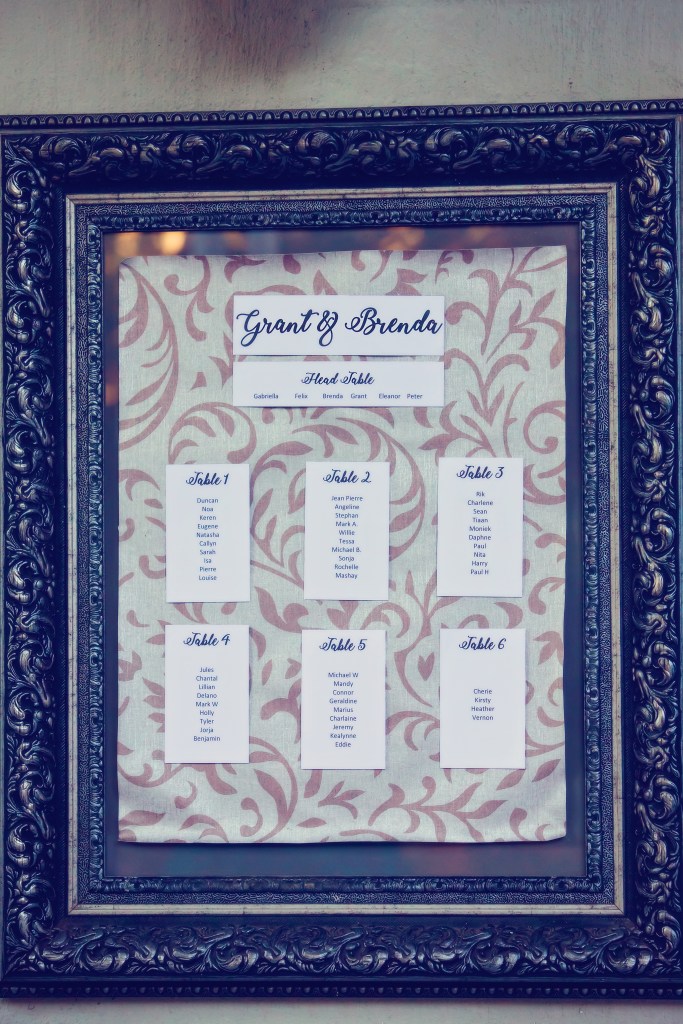 Grant & Brenda
Head Table
Gabriella Felix Brenda Grant Eleanor Peter
Table 1
Duncan
Noa
Keren
Eugene
Natasha
Callyn
Sarah
Isa
Pierre
Louise
Table 2
Jean Pierre
Angeline
Stephan
Mark A.
Willie
Tessa
Michael B.
Sonja
Rochelle
Mashay
Table 3
Rik
Charlene
Sean
Tiaan
Moniek
Daphne
Paul
Nita
Harry
Paul H
Table 4
Jules
Chantal
Lillian
Delano
Mark W
Holly
Tyler
Jorja
Benjamin
Table 5
Michael W
Mandy
Connor
Geraldine
Marius
Charlaine
Jeremy
Kealynne
Eddie
Table 6
Cherie
Kirsty
Heather
Vernon